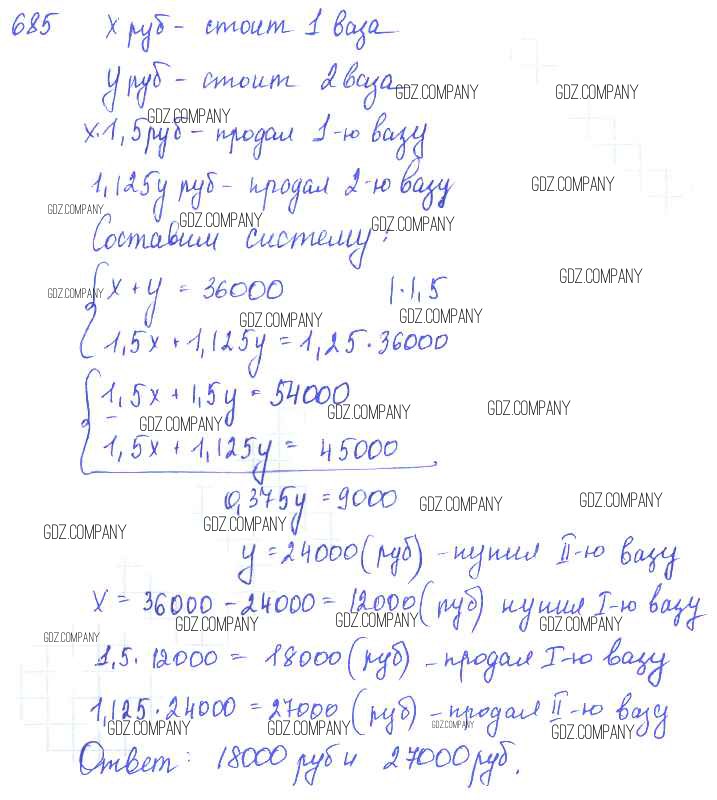 685 x руб - стоит 1 ваза
y руб - стоит 2 ваза
GDZ.COMPANY GDZ.COMPANY
GDZ.COMPANY
x·1,5 руб - продал 1-ю вазу
1,125y руб - продал 2-ю вазу
GDZ.COMPANY
GDZ.COMPANY GDZ.COMPANY GDZ.COMPANY
Составим систему:
GDZ.COMPANY
x + y = 36000 |·1,5
GDZ.COMPANY
GDZ.COMPANY GDZ.COMPANY
1,5x + 1,125y = 1,25·36000
1,5x + 1,5y = 54000
GDZ.COMPANY GDZ.COMPANY GDZ.COMPANY
-
1,5x + 1,125y = 45000
0,375y = 9000
GDZ.COMPANY GDZ.COMPANY
GDZ.COMPANY GDZ.COMPANY
y = 24000 (руб) - купил II-ю вазу
x = 36000 - 24000 = 12000 (руб) купил I-ю вазу
GDZ.COMPANY GDZ.COMPANY GDZ.COMPANY
GDZ.COMPANY
1,5·12000 = 18000 (руб) - продал I-ю вазу
1,125·24000 = 27000 (руб) - продал II-ю вазу
GDZ.COMPANY GDZ.COMPANY GDZ.COMPANY GDZ.COMPANY
Ответ: 18000 руб и 27000 руб.